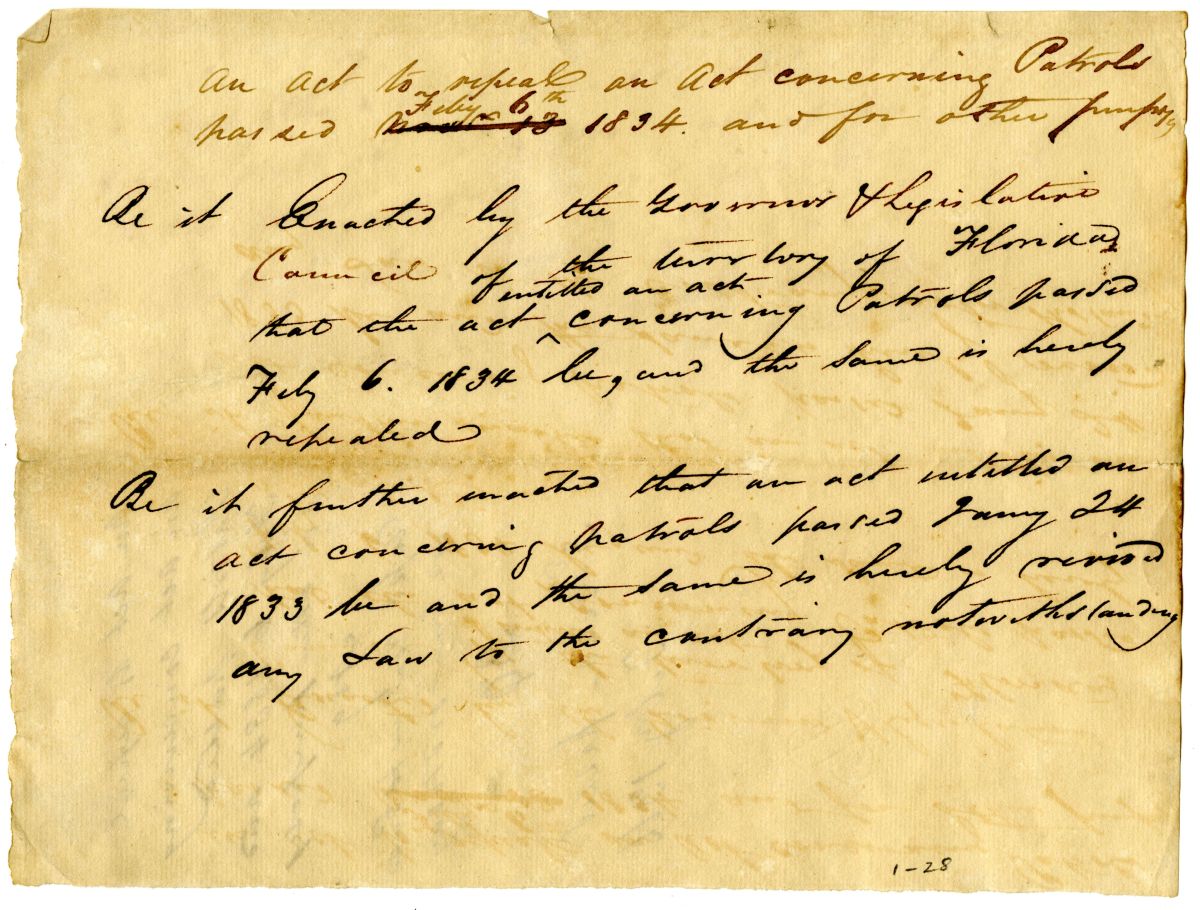 An act to repeal an Act concerning Patrols
Feby 6th
passed 13 1834. and for other purposes
Be it Enacted by the Governor & Legislative
Council of the territory of Florida
entitled an act
that the act ^ concerning Patrols passed
Feby 6. 1834 be, and the same is hereby
repealed
Be it further enacted that an act intitled an
act concerning patrols passed Jany 24
1833 be and the same is hereby revised
any Law to the contrary notwithstanding
1-28